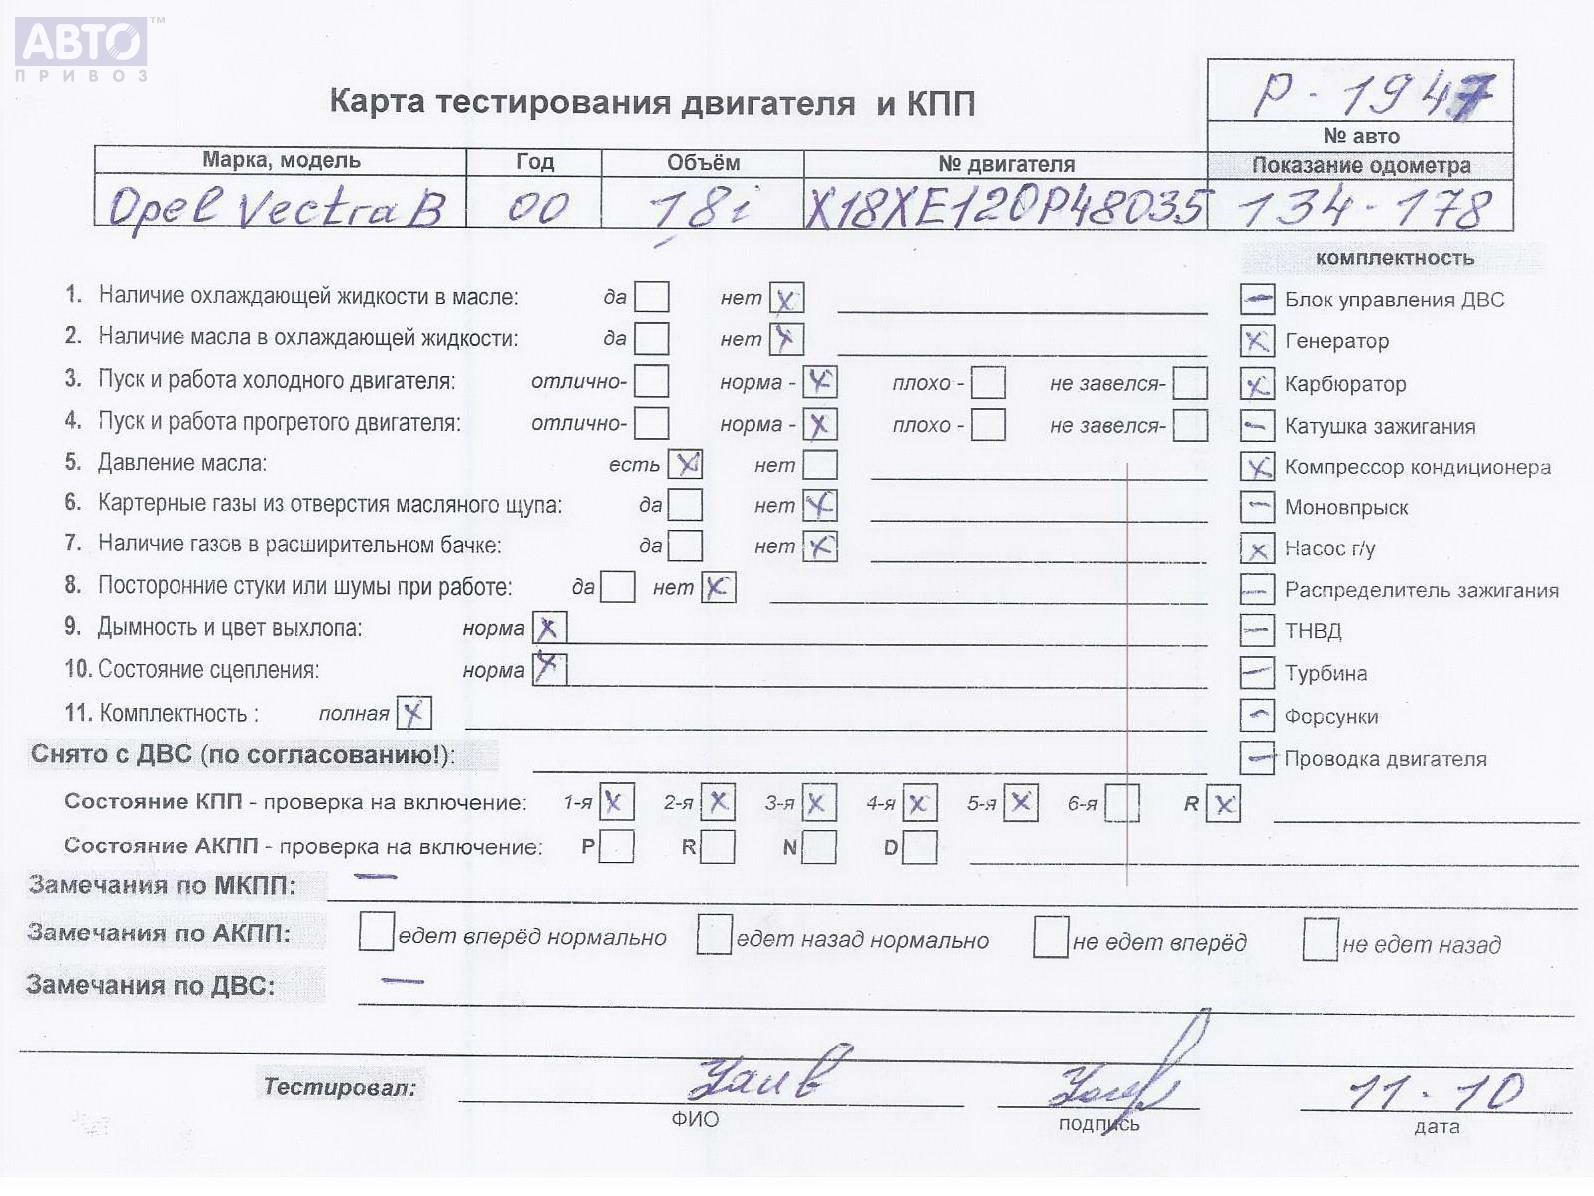 АВТО™
ПРИВОЗ
Карта тестирования двигателя и КПП
Р - 1947
№ авто
Марка, модель Год Объём № двигателя Показание одометра
Opel Vectra B 00 18i X18XE120P48035 134-178
комплектность
1. Наличие охлаждающей жидкости в масле: да нет X
Блок управления ДВС
2. Наличие масла в охлаждающей жидкости: да нет X
Генератор
3. Пуск и работа холодного двигателя: отлично- норма - X плохо - не завелся-
Карбюратор
4. Пуск и работа прогретого двигателя: отлично- норма - X плохо - не завелся-
Катушка зажигания
5. Давление масла: есть X нет
Компрессор кондиционера
6. Картерные газы из отверстия масляного щупа: да нет X
Моновпрыск
7. Наличие газов в расширительном бачке: да нет X
Насос г/у
8. Посторонние стуки или шумы при работе: да нет X
Распределитель зажигания
9. Дымность и цвет выхлопа: норма X
ТНВД
10. Состояние сцепления: норма X
Турбина
11. Комплектность : полная X
Форсунки
Снято с ДВС (по согласованию!):
Проводка двигателя
Состояние КПП - проверка на включение: 1-я X 2-я X 3-я X 4-я X 5-я X 6-я R X
Состояние АКПП - проверка на включение: P R N D
Замечания по МКПП: —
Замечания по АКПП: едет вперёд нормально едет назад нормально не едет вперёд не едет назад
Замечания по ДВС: —
Тестировал: 11.10
ФИО подпись дата